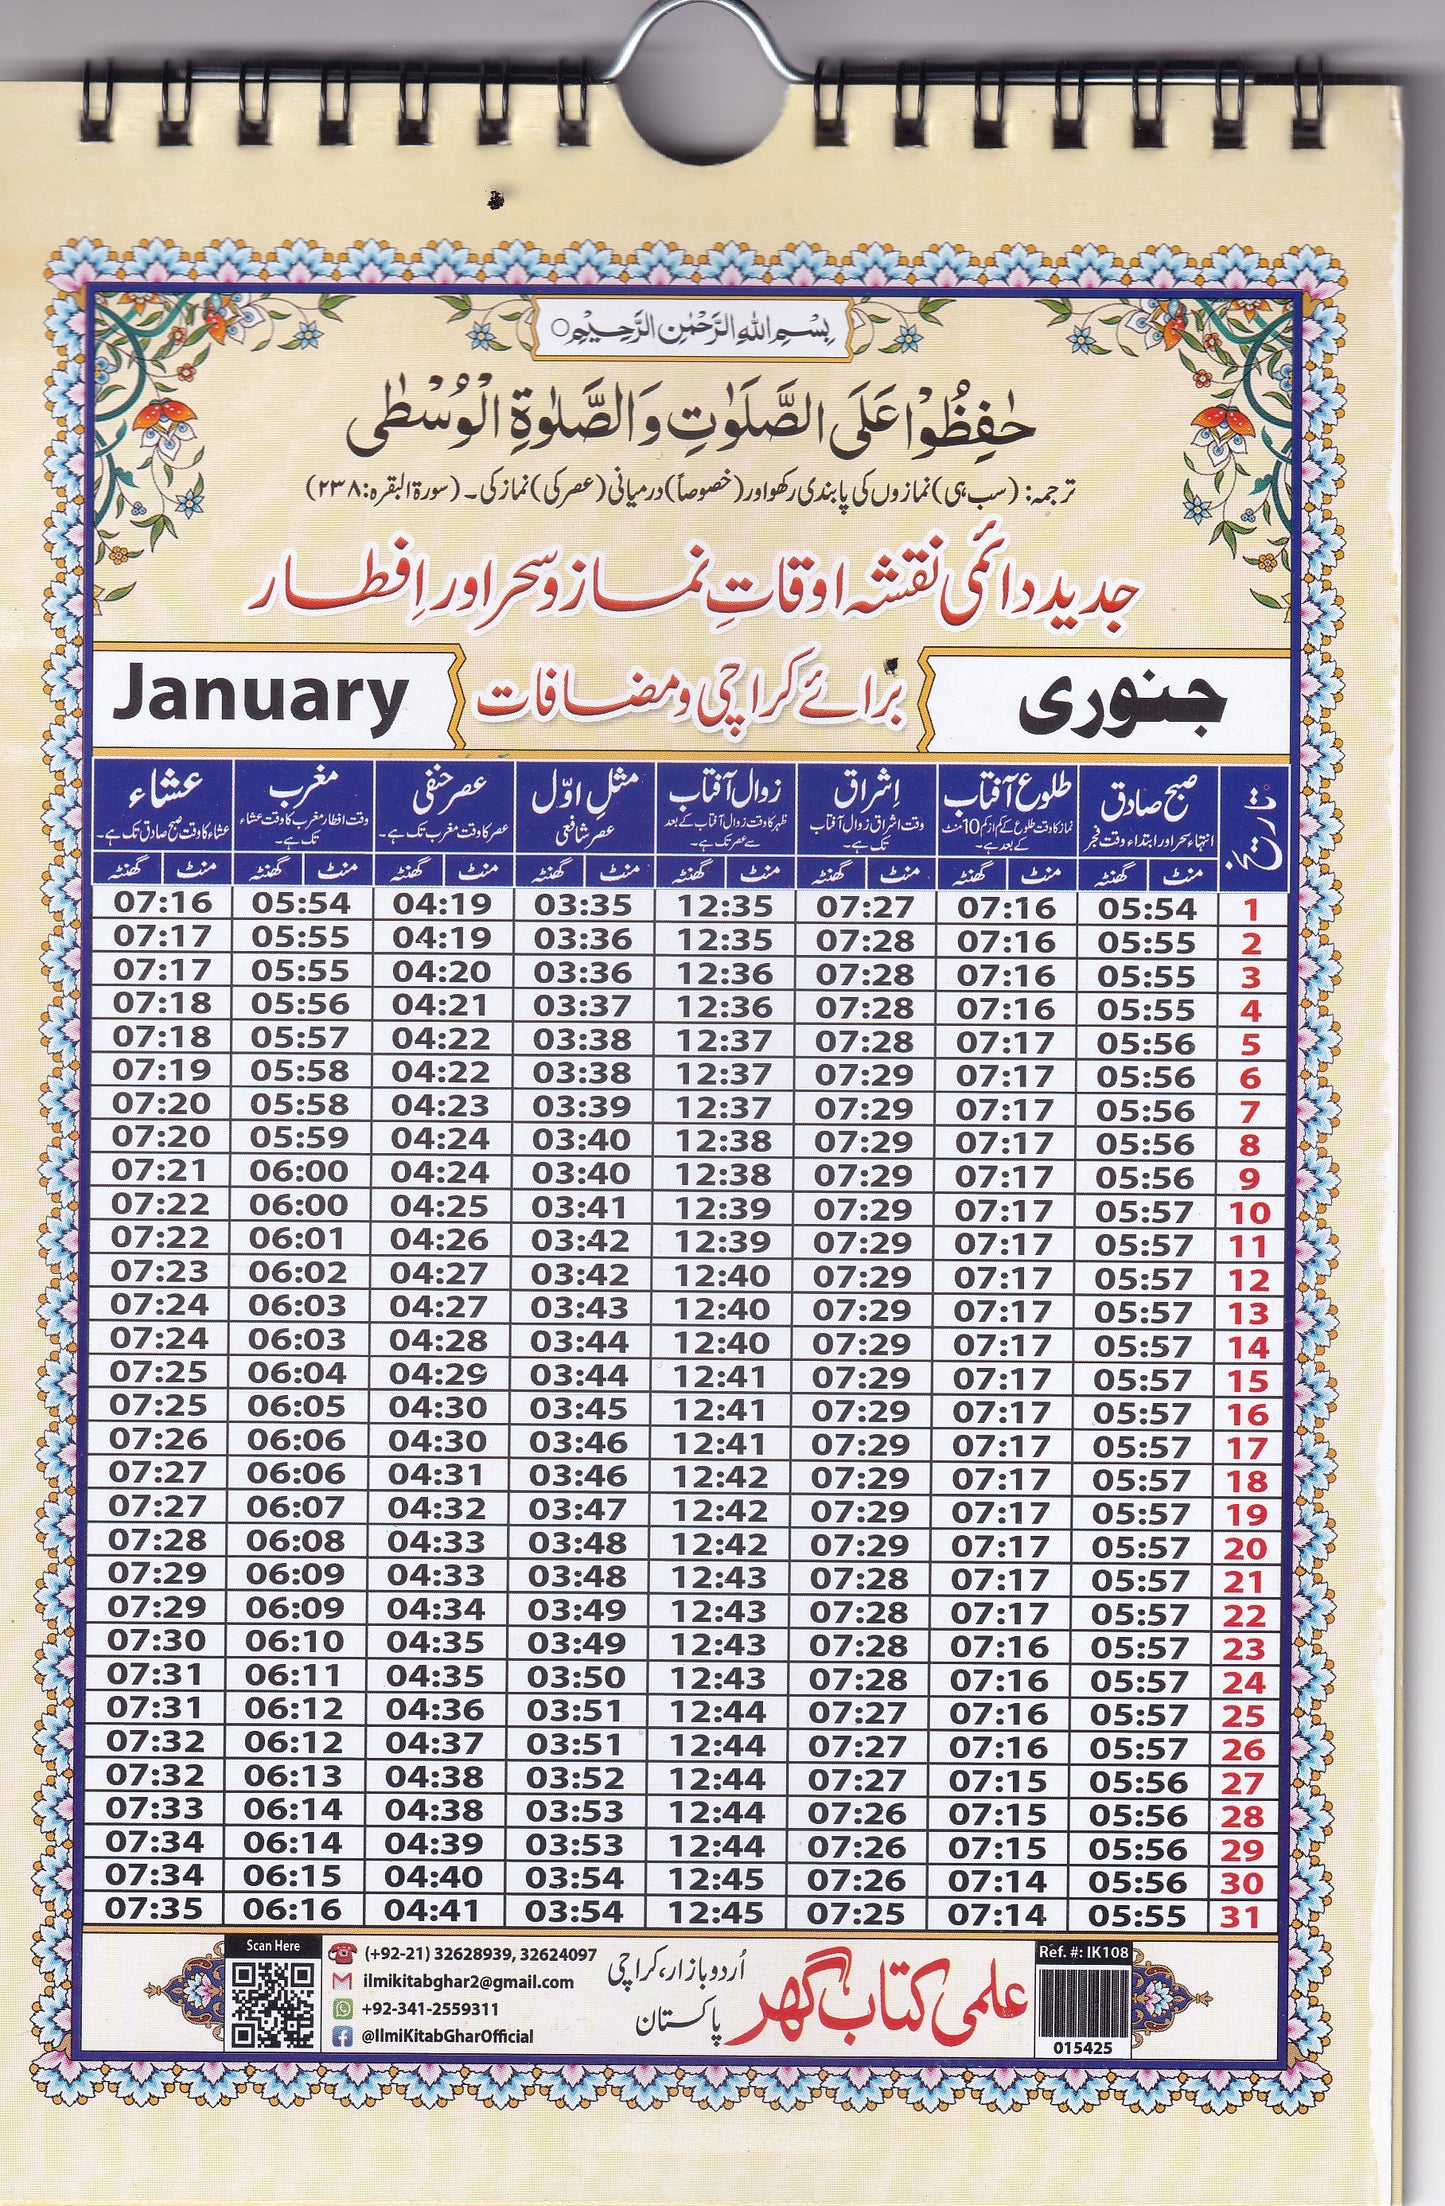 بِسْمِ اللهِ الرَّحْمٰنِ الرَّحِيْمِ
حٰفِظُوْا عَلَى الصَّلَوٰتِ وَالصَّلٰوةِ الْوُسْطٰى
ترجمہ: (سب ہی) نمازوں کی پابندی رکھو اور (خصوصاً) درمیانی (عصر کی) نماز کی۔ (سورۃ البقرہ: ۲۳۸)
جدید دائمی نقشہ اوقاتِ نماز و سحر اور اِفطار
جنوری برائے کراچی و مضافات January
تاریخ صبح صادق طلوع آفتاب اِشراق زوال آفتاب مثل اوّل عصر حنفی مغرب عشاء
انتہاء سحر اور ابتداء وقت فجر نماز کا وقت طلوع کے کم از کم 10 منٹ کے بعد ہے۔ وقت اشراق زوال آفتاب تک ہے۔ ظہر کا وقت زوال آفتاب کے بعد سے عصر تک ہے۔ عصر شافعی عصر کا وقت مغرب تک ہے۔ وقت افطار مغرب کا وقت عشاء تک ہے۔ عشاء کا وقت صبح صادق تک ہے۔
منٹ گھنٹہ منٹ گھنٹہ منٹ گھنٹہ منٹ گھنٹہ منٹ گھنٹہ منٹ گھنٹہ منٹ گھنٹہ منٹ گھنٹہ
1 05:54 07:16 07:27 12:35 03:35 04:19 05:54 07:16
2 05:55 07:16 07:28 12:35 03:36 04:19 05:55 07:17
3 05:55 07:16 07:28 12:36 03:36 04:20 05:55 07:17
4 05:55 07:16 07:28 12:36 03:37 04:21 05:56 07:18
5 05:56 07:17 07:28 12:37 03:38 04:22 05:57 07:18
6 05:56 07:17 07:29 12:37 03:38 04:22 05:58 07:19
7 05:56 07:17 07:29 12:37 03:39 04:23 05:58 07:20
8 05:56 07:17 07:29 12:38 03:40 04:24 05:59 07:20
9 05:56 07:17 07:29 12:38 03:40 04:24 06:00 07:21
10 05:57 07:17 07:29 12:39 03:41 04:25 06:00 07:22
11 05:57 07:17 07:29 12:39 03:42 04:26 06:01 07:22
12 05:57 07:17 07:29 12:40 03:42 04:27 06:02 07:23
13 05:57 07:17 07:29 12:40 03:43 04:27 06:03 07:24
14 05:57 07:17 07:29 12:40 03:44 04:28 06:03 07:24
15 05:57 07:17 07:29 12:41 03:44 04:29 06:04 07:25
16 05:57 07:17 07:29 12:41 03:45 04:30 06:05 07:25
17 05:57 07:17 07:29 12:41 03:46 04:30 06:06 07:26
18 05:57 07:17 07:29 12:42 03:46 04:31 06:06 07:27
19 05:57 07:17 07:29 12:42 03:47 04:32 06:07 07:27
20 05:57 07:17 07:29 12:42 03:48 04:33 06:08 07:28
21 05:57 07:17 07:28 12:43 03:48 04:33 06:09 07:29
22 05:57 07:17 07:28 12:43 03:49 04:34 06:09 07:29
23 05:57 07:16 07:28 12:43 03:49 04:35 06:10 07:30
24 05:57 07:16 07:28 12:43 03:50 04:35 06:11 07:31
25 05:57 07:16 07:27 12:44 03:51 04:36 06:12 07:31
26 05:57 07:16 07:27 12:44 03:51 04:37 06:12 07:32
27 05:56 07:15 07:27 12:44 03:52 04:38 06:13 07:32
28 05:56 07:15 07:26 12:44 03:53 04:38 06:14 07:33
29 05:56 07:15 07:26 12:44 03:53 04:39 06:14 07:34
30 05:56 07:14 07:26 12:45 03:54 04:40 06:15 07:34
31 05:55 07:14 07:25 12:45 03:54 04:41 06:16 07:35
Ref. #: IK108
015425
علمی کتاب گھر
اُردو بازار، کراچی
پاکستان
(+92-21) 32628939, 32624097
ilmikitabghar2@gmail.com
+92-341-2559311
@IlmiKitabGharOfficial
Scan Here